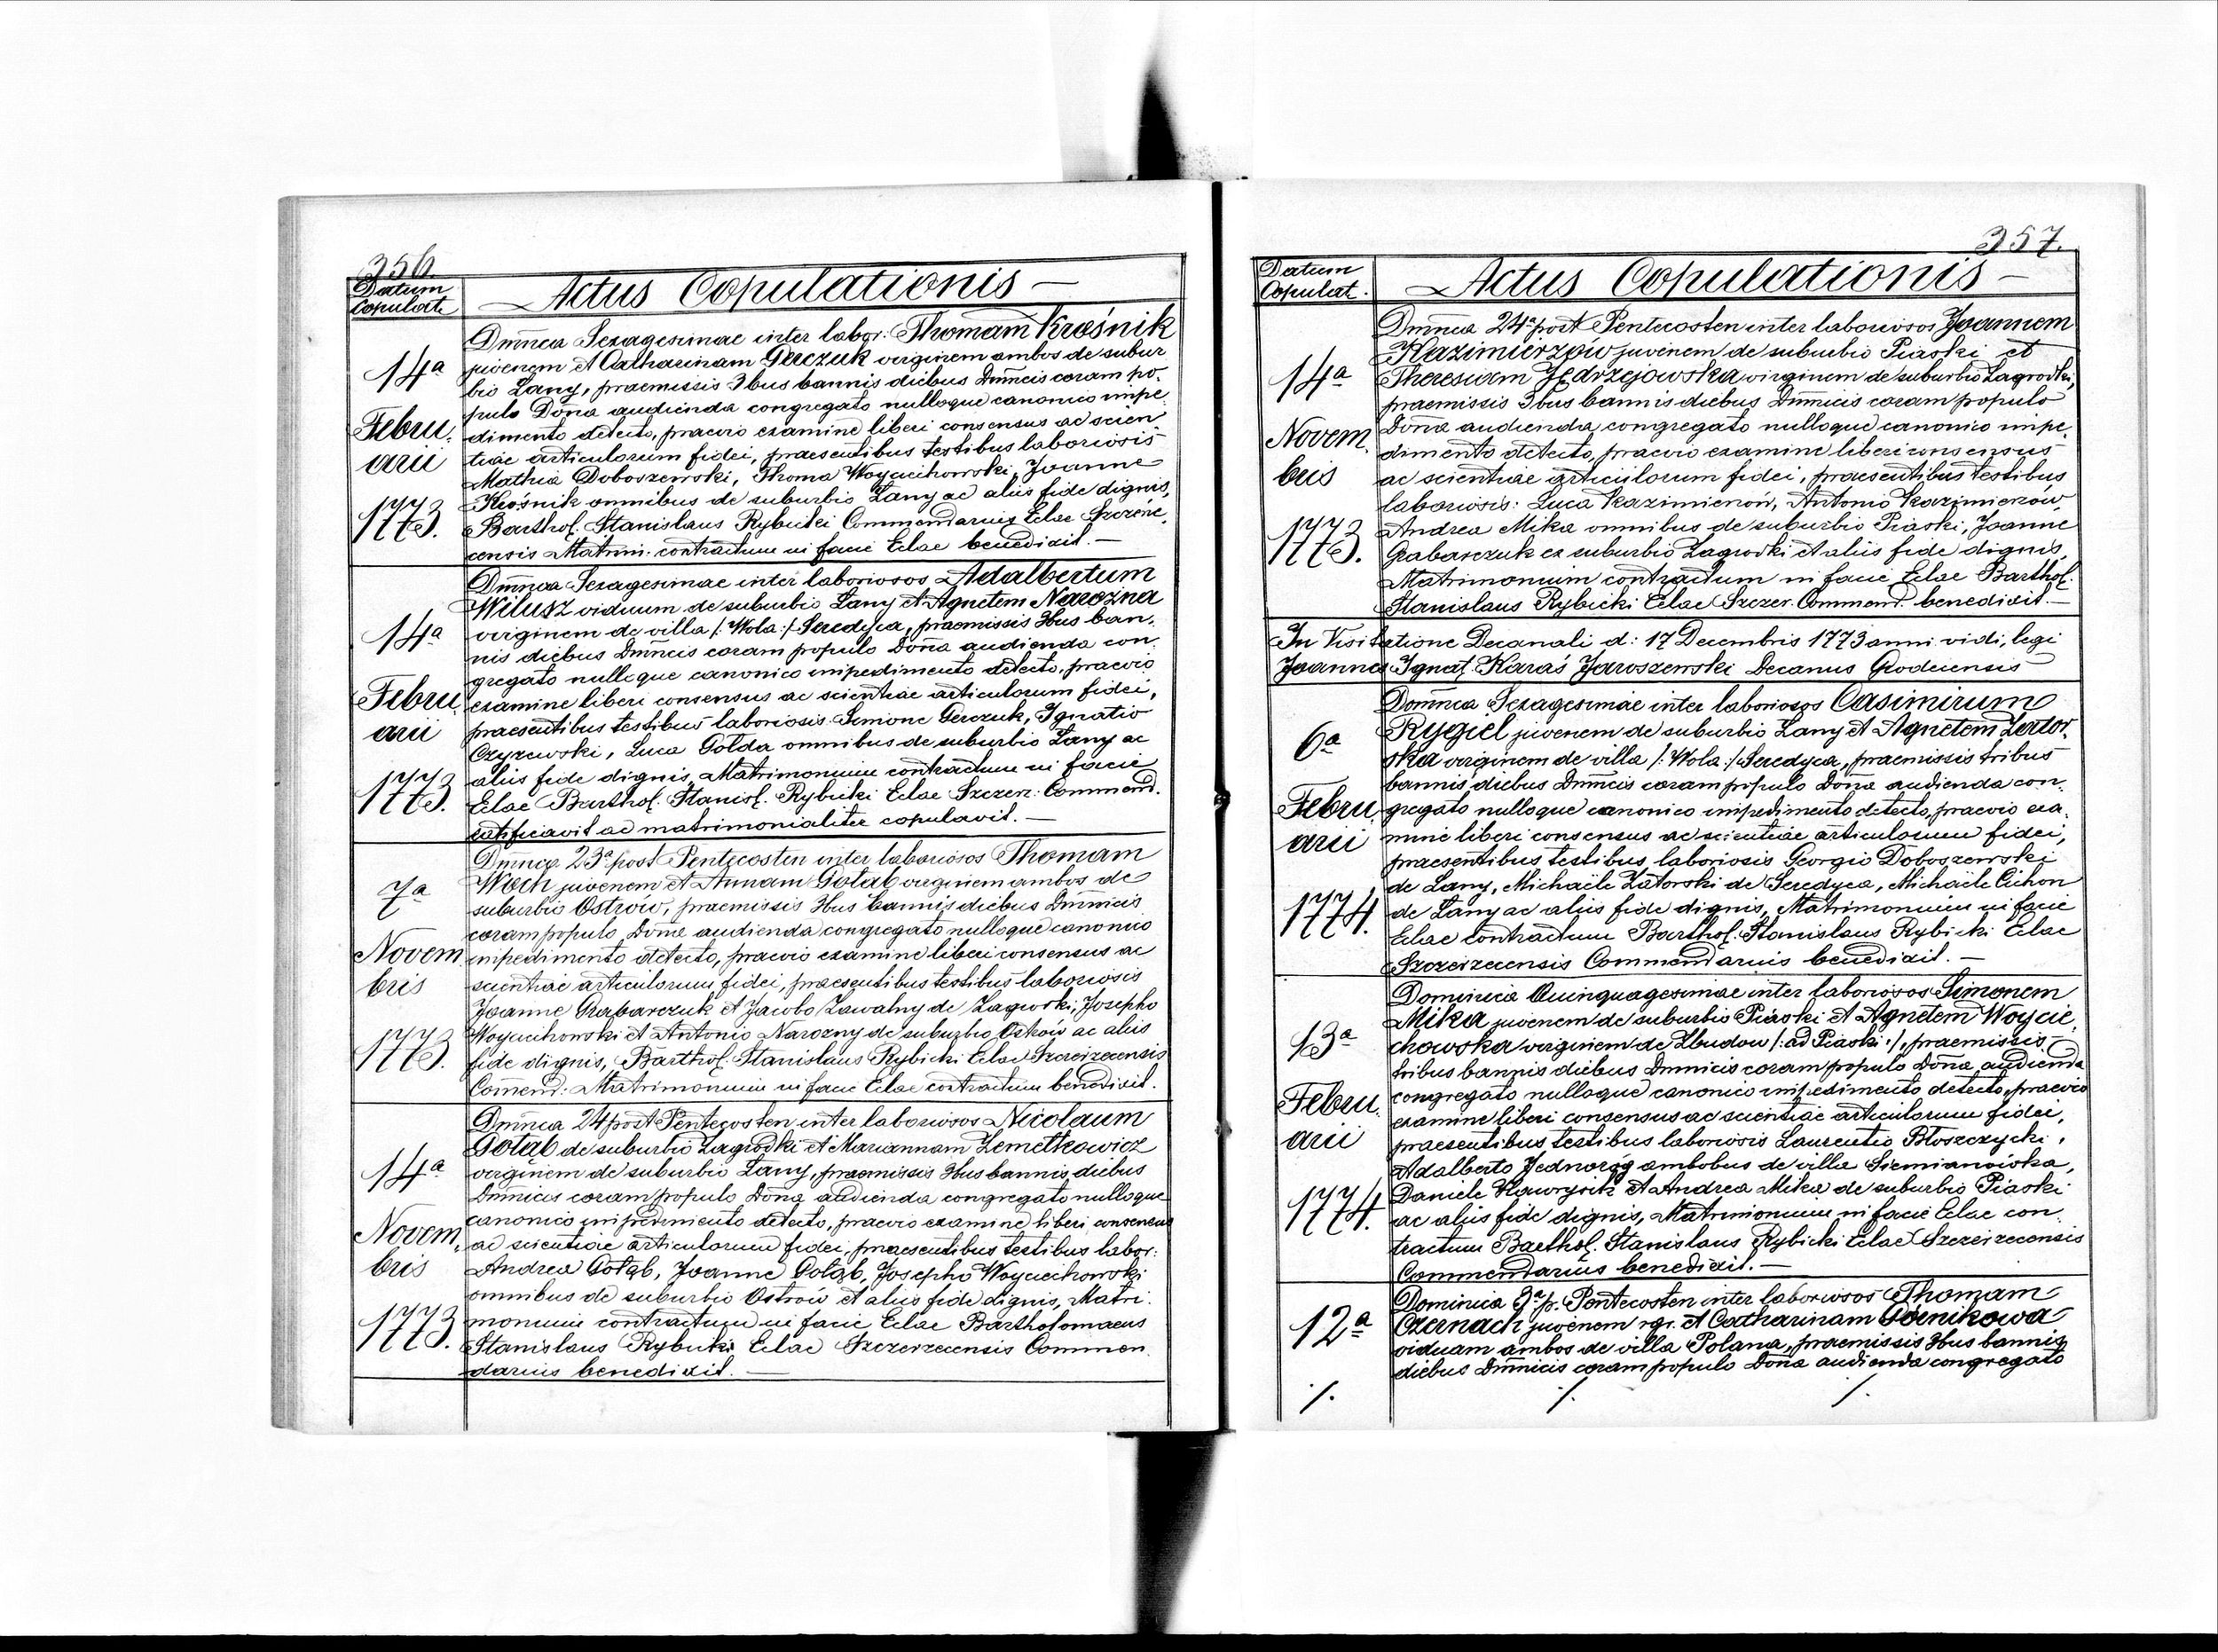 356.
Datum
Copulat.
Actus Copulationis —
14a
Febru.
arii
1773.
Dm̄nca Sexagesimae inter labor: Thomam Krośnik
juvenem et Catharinam Gerczuk virginem ambos de subur
bio Łany, praemissis 3bus bannis diebus Dm̄ncis coram po.
pulo Dōna audienda congregato nulloque canonico impe.
dimento detecto, praevio examine liberi consensus ac scien
tiae articulorum fidei, praesentibus testibus laboriosis
Mathia Doboszewski, Thoma Woyciichowski, Joanne
Krośnik omnibus de suburbio Łany ac aliis fide dignis,
Barthol. Stanislaus Rybicki Commendarius Eclae Szczerze.
censis Matrim. contractum in facie Eclae benedixit. —
14a
Febru.
arii
1773.
Dm̄nca Sexagesimae inter laboriosos Adalbertum
Wilusz viduum de suburbio Łany et Agnetem Narozna
virginem de villa /: Wola :/ Seredyca, praemissis 3bus ban.
nis diebus Dm̄ncis coram populo Dōna audienda con.
gregato nulloque canonico impedimento detecto, praevio
examine liberi consensus ac scientiae articulorum fidei,
praesentibus testibus laboriosis Simone Gerczuk, Ignatio
Czyzewski, Luca Golda omnibus de suburbio Łany ac
aliis fide dignis, Matrimonium contractum in facie
Eclae Barthol. Stanisl. Rybicki Eclae Szczerz: Commend.
ratificavit ac matrimonialiter copulavit. —
7a
Novem
bris
1773.
Dmnca 23a post Pentecosten inter laboriosos Thomam
Woch juvenem et Annam Gołąb virginem ambos de
suburbio Ostrow, praemissis 3bus bannis diebus Dm̄nicis
coram populo Dōna audienda congregato nulloque canonico
impedimento detecto, praevio examine liberi consensus ac
scientiae articulorum fidei, praesentibus testibus laboriosis
Joanne Grabarczuk et Jacobo Zawalny de Zagrodki, Josepho
Woyciichowski et Antonio Narozny de suburbio Ostrów ac aliis
fide dignis, Barthol. Stanislaus Rybicki Eclae Szczeizecensis
Com̄end: Matrimonium in facie Eclae contractum benedixit.
14a
Novem.
bris
1773.
Dm̄nca 24 post Pentecosten inter laboriosos Nicolaum
Gołąb de suburbio Zagrodki et Mariannam Zemełkowicz
virginem de suburbio Łany, praemissis 3bus bannis diebus
Dm̄nicis coram populo Dōna audienda congregato nulloque
canonico impedimento detecto, praevio examine liberi consensus
ac scientiae articulorum fidei, praesentibus testibus labor:
Andrea Gołąb, Joanne Gołąb, Josepho Woyciichowski
omnibus de suburbio Ostrów et aliis fide dignis, Matri.
monium contractum in facie Eclae Bartholomaeus
Stanislaus Rybicki Eclae Szczerzecensis Commen.
darius benedixit. —
357.
Datum
Copulat.
Actus Copulationis —
14a
Novem.
bris
1773.
Dm̄nca 24a post Pentecosten inter laboriosos Joannem
Kazimierzów juvenem de suburbio Piaski et
Theresiam Jędrzejowska virginem de suburbio Zagrodki,
praemissis 3bus bannis diebus Dm̄nicis coram populo
Dōna audienda congregato nulloque canonico impe.
dimento detecto, praevio examine liberi consensus
ac scientiae articulorum fidei, praesentibus testibus
laboriosis: Luca Kazimierzów, Antonio Kazimierzów,
Andrea Mika omnibus de suburbio Piaski, Joanne
Grabarczuk ex suburbio Zagrodki et aliis fide dignis,
Matrimonium contractum in facie Eclae Barthol.
Stanislaus Rybicki Eclae Szczer. Commend. benedixit. —
In Visitatione Decanali d: 17 Decembris 1773 anni vidi, legi
Joannes Ignat. Karaś Jaroszewski Decanus Grodecensis
6a
Febru.
arii
1774.
Dom̄nca Sexagesimae inter laboriosos Casimirum
Rygiel juvenem de suburbio Łany et Agnetem Zator.
ska virginem de villa /: Wola :/ Seredyca, praemissis tribus
bannis diebus Dm̄ncis coram populo Dōna audienda con.
gregato nulloque canonico impedimento detecto, praevio exa.
mine liberi consensus ac scientiae articulorum fidei,
praesentibus testibus laboriosis Georgio Doboszewski
de Łany, Michaële Zatorski de Seredyca, Michaële Cichon
de Łany ac aliis fide dignis, Matrimonium in facie
Eclae contractum Barthol. Stanislaus Rybicki Eclae
Szczeizecensis Commendarius benedixit. —
13a
Febru.
arii
1774.
Dominica Quinquagesimae inter laboriosos Simonem
Mika juvenem de suburbio Piaski et Agnetem Woycie.
chowska virginem de Zbudow /: ad Piaski :/, praemissis
tribus bannis diebus Dmnicis coram populo Dōna audienda
congregato nulloque canonico impedimento detecto, praevio
examine liberi consensus ac scientiae articulorum fidei,
praesentibus testibus laboriosis Laurentio Błoszczycki,
Adalberto Jednoróg ambobus de villa Siemianówka,
Daniele Hawrysik et Andrea Mika de suburbio Piaski
ac aliis fide dignis, Matrimonium in facie Eclae con.
tractum Barthol. Stanislaus Rybicki Eclae Szczeizecensis
Commendarius benedixit. —
12a
Dominica 3a p. Pentecosten inter laboriosos Thomam
Czarnach juvenem rgr. et Catharinam Górnikowa
viduam ambos de villa Polana, praemissis 3bus bannis
diebus Dm̄nicis coram populo Dōna audienda congregato
/. /. /.